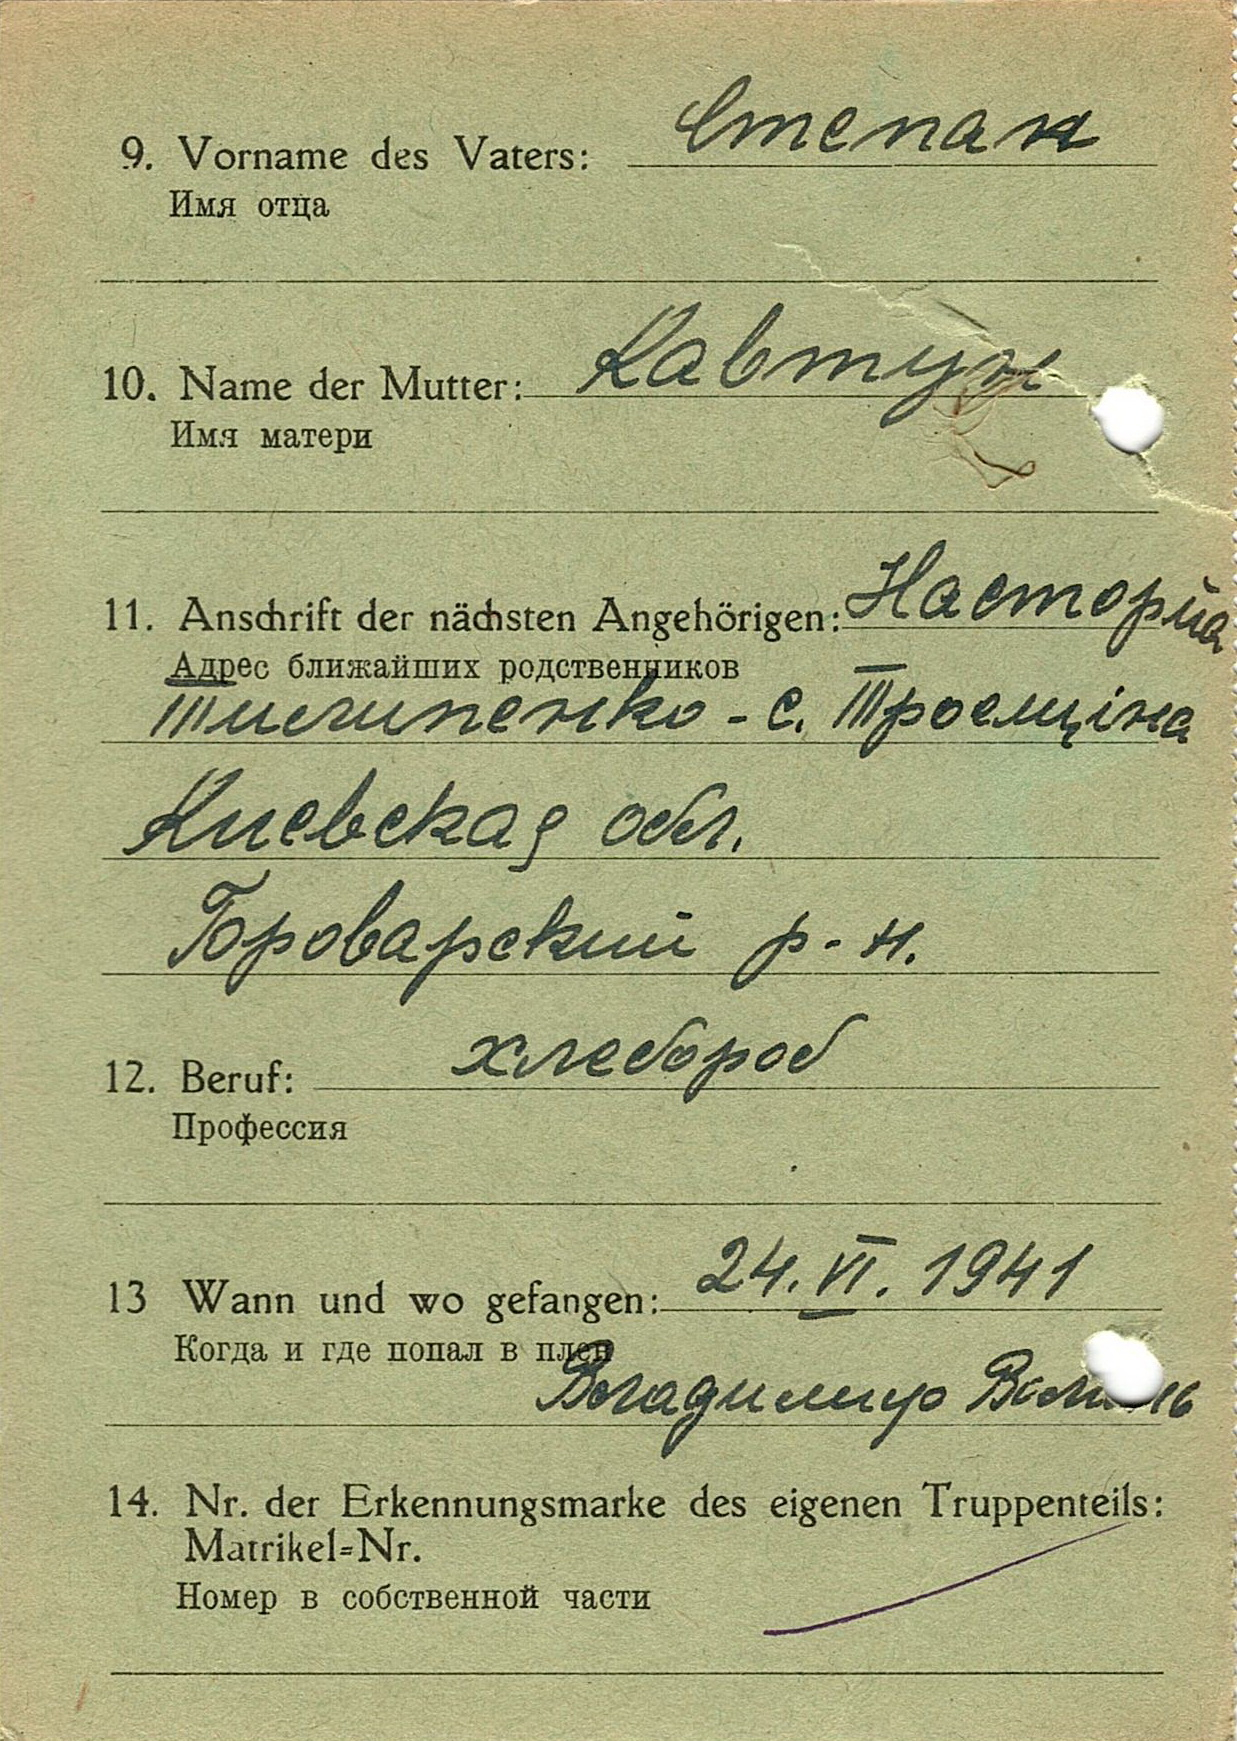 9. Vorname des Vaters: Степан
Имя отца
10. Name der Mutter: Кавтун
Имя матери
11. Anschrift der nächsten Angehörigen: Насторйа
Адрес ближайших родственников
Тилипенко - с. Троемціна
Киевская обл.
Бороварский р-н.
12. Beruf: хлебороб
Профессия
13 Wann und wo gefangen: 24. VI. 1941
Когда и где попал в плен
Владимир
14. Nr. der Erkennungsmarke des eigenen Truppenteils:
Matrikel=Nr.
Номер в собственной части